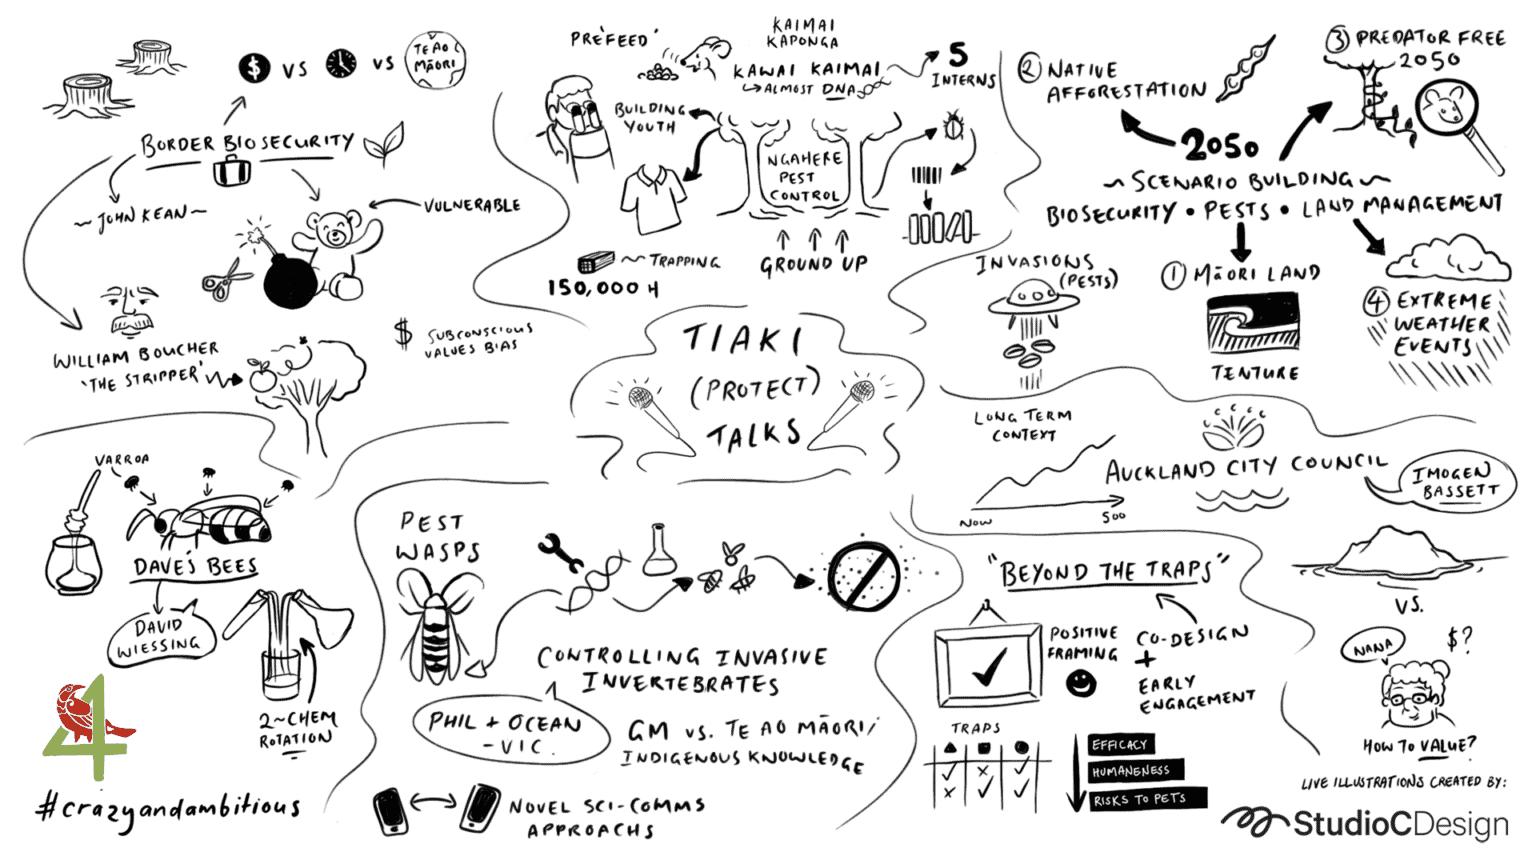 $ VS VS TE AO
MĀORI
BORDER BIOSECURITY
~JOHN KEAN~
VULNERABLE
WILLIAM BOUCHER
'THE STRIPPER'
$ SUBCONSCIOUS
VALUES BIAS
PRE'FEED'
KAIMAI
KAPONGA
KAWAI KAIMAI
ALMOST DNA
5
INTERNS
BUILDING
YOUTH
NGAHERE
PEST
CONTROL
TRAPPING
150,000 H
GROUND UP
② NATIVE
AFFORESTATION
③ PREDATOR FREE
2050
2050
~ SCENARIO BUILDING ~
BIOSECURITY • PESTS • LAND MANAGEMENT
INVASIONS
(PESTS)
① MĀORI LAND
TENTURE
④ EXTREME
WEATHER
EVENTS
TIAKI
(PROTECT)
TALKS
LONG TERM
CONTEXT
NOW
500
AUCKLAND CITY COUNCIL
IMOGEN
BASSETT
VARROA
DAVE'S BEES
DAVID
WIESSING
2~CHEM
ROTATION
4
#crazyandambitious
PEST
WASPS
CONTROLLING INVASIVE
INVERTEBRATES
PHIL + OCEAN
-VIC.
GM VS. TE AO MĀORI/
INDIGENOUS KNOWLEDGE
NOVEL SCI-COMMS
APPROACHS
"BEYOND THE TRAPS"
POSITIVE
FRAMING
CO-DESIGN
+
EARLY
ENGAGEMENT
TRAPS
EFFICACY
HUMANENESS
RISKS TO PETS
VS.
NANA
$?
HOW TO VALUE?
LIVE ILLUSTRATIONS CREATED BY:
StudioCDesign